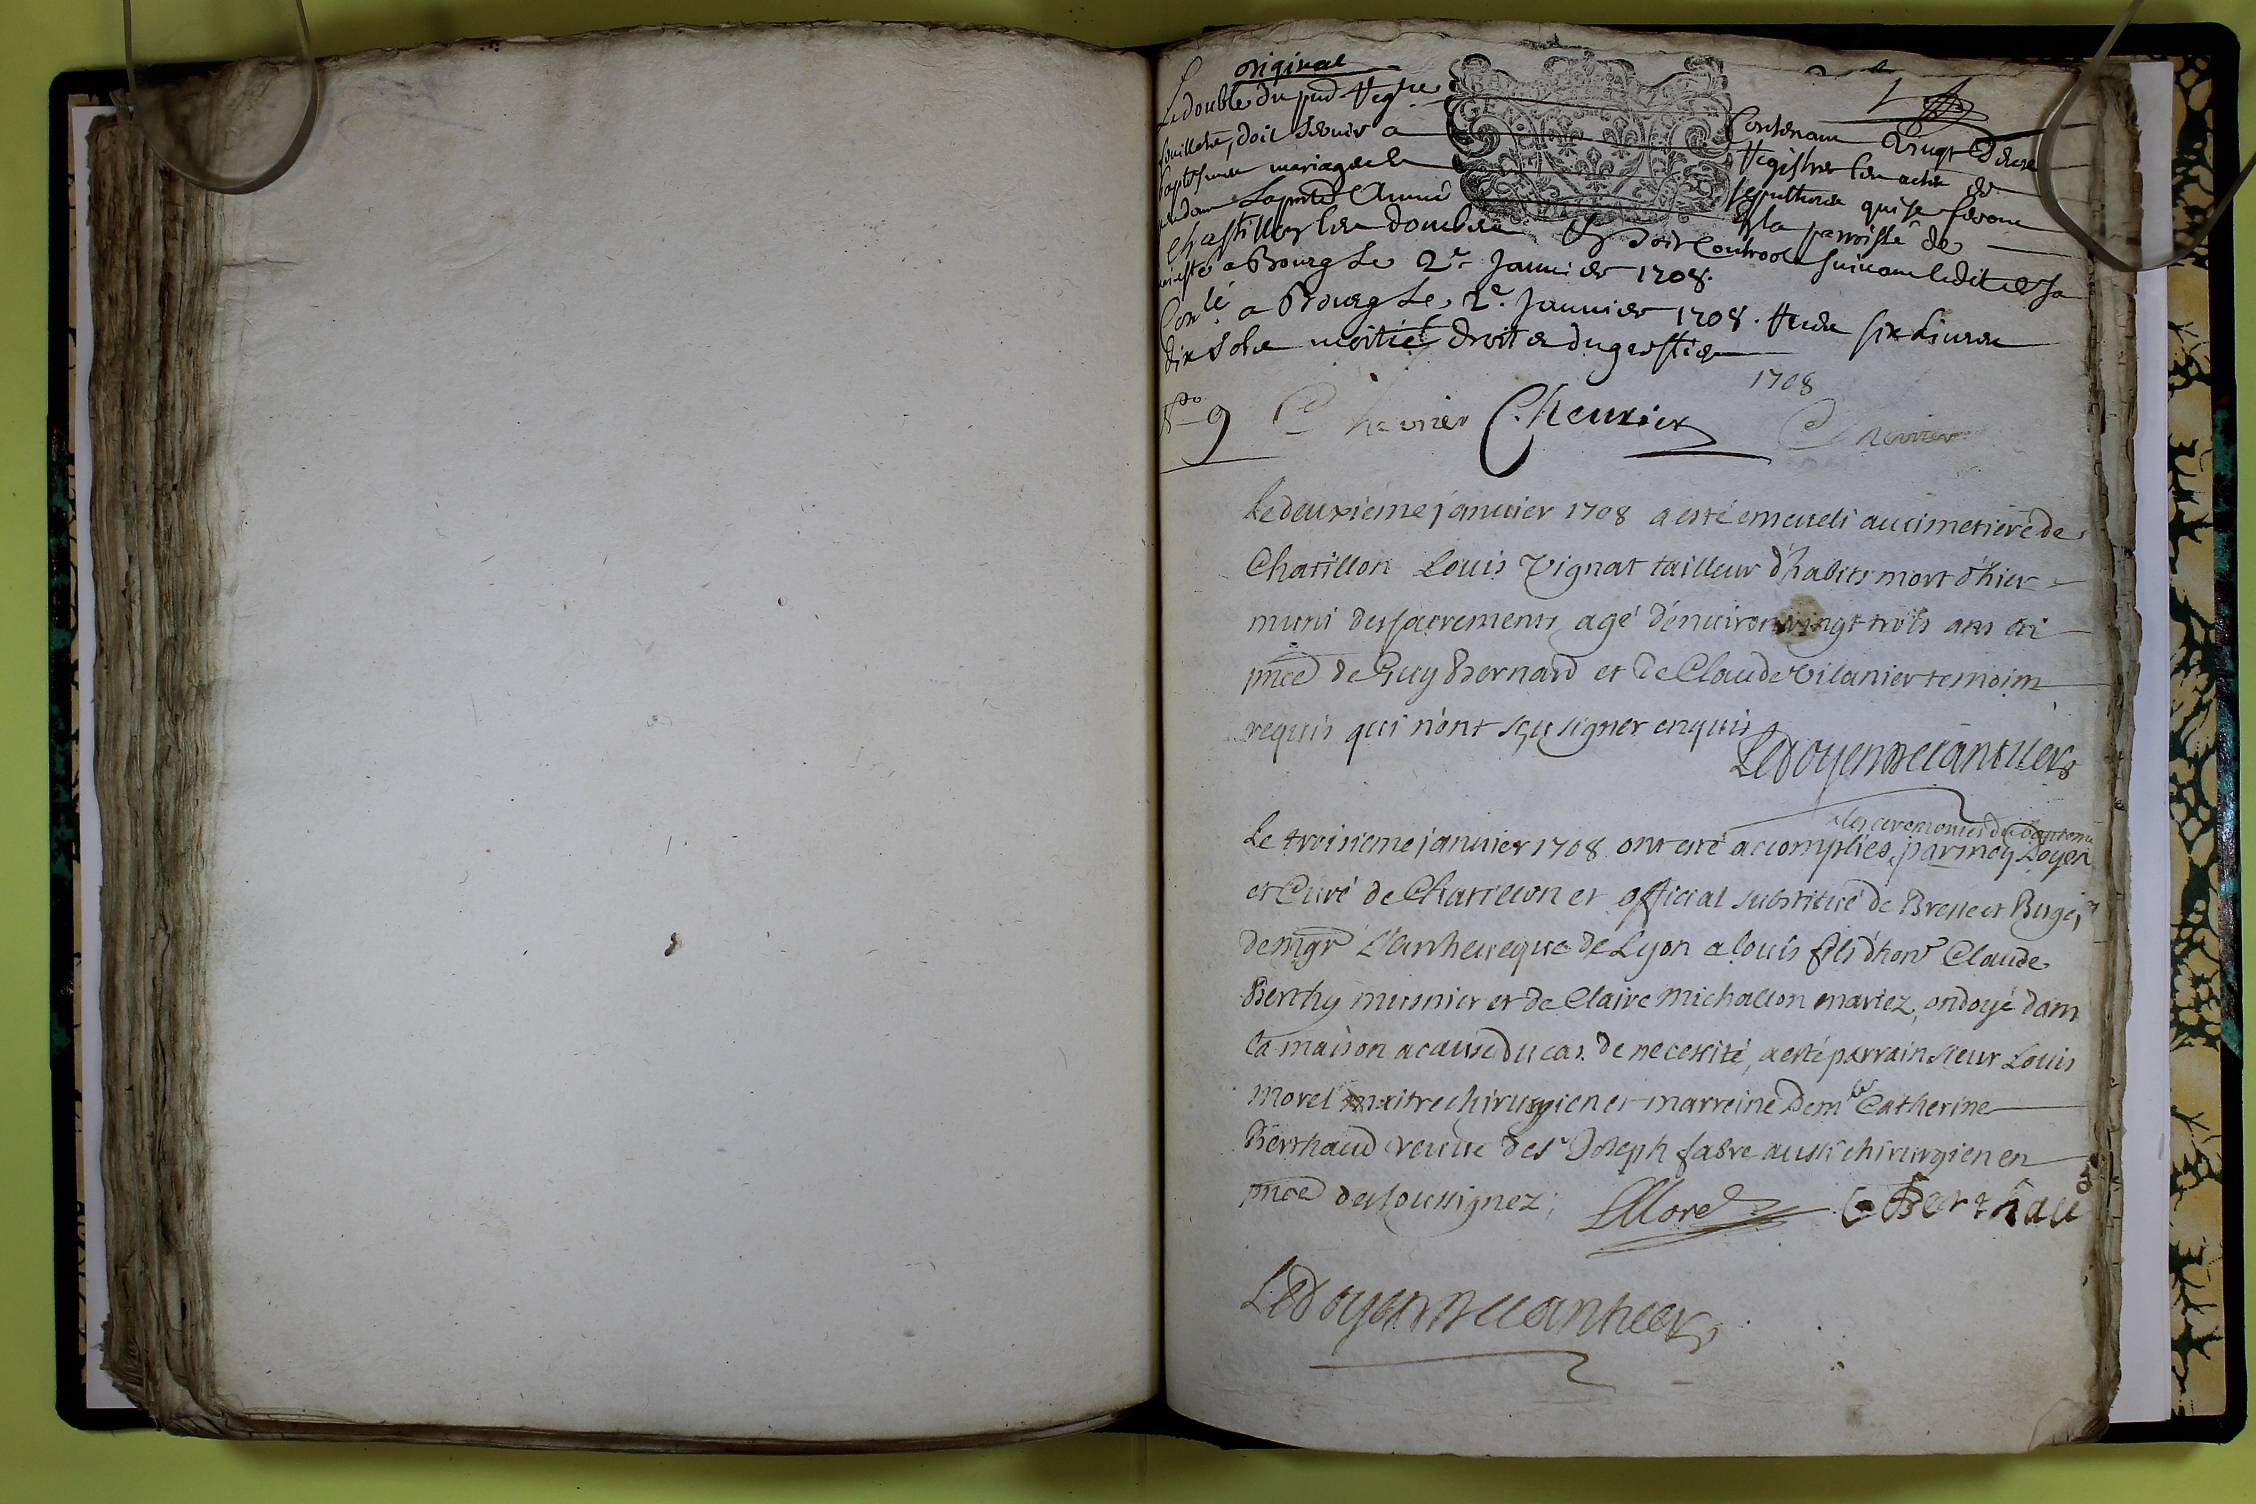 original
Le double du pnt Regtre Contenant vingt deux
feuillets, doit servir a Registrer les actes de
baptesmes mariages et sepultures qui se feront
pendant la pnte Année en la parroisse de
Chastillon les dombes Et doit Controole suivant ledit et sa
a Bourg Le 2e Janvier 1708.
Conlé a Bourg Le 2e Janvier 1708. Reçu six Livres
dix sols moitié droits du greffier
1708
fo 9 Chevrier Cheurier Chevrier
Le deuxieme janvier 1708 a esté enseveli au cimetiere de
Chatillon Louis Vignat tailleur d'habits mort d'hier
muni des sacrements agé d'enuiron vingt trois ans en
pnce de Guy Bernard et de Claude Vilanier temoins
requis qui n'ont sçu signer enquis
Le troisieme janvier 1708 ont esté accomplies les ceremonies du bapteme par moy Doyen
et Curé de Chatillon et official substitué de Bresse et Bugei
de mgr L'archeueque de Lyon a louis fils d'honr Claude
Berthy musnier et de Claire Michallon mariez, ondoyé dans
la maison a cause du cas de necessité, a esté parrain sieur Louis
Morel maitre chirurgien et marreine Demlle Catherine
Berthaud veuue de sr Joseph fabre aussi chirurgien en
pnce des soussignez; LMorel C Berthaud